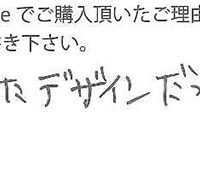 e でご購入頂いたご理由
き下さい。
たデザインだっ